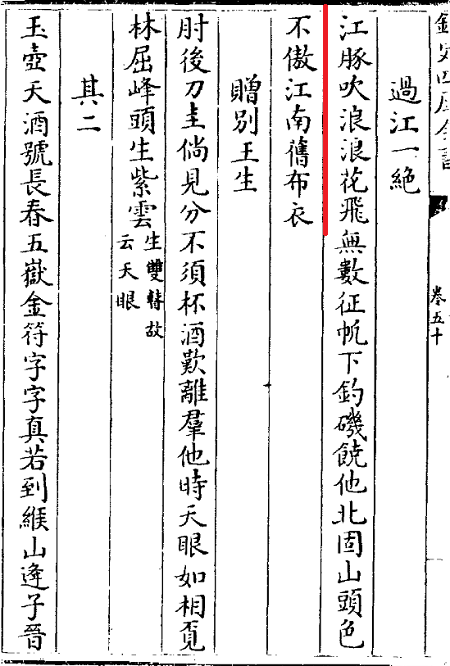 卷五十
過江一絶
江豚吹浪浪花飛無數征帆下釣磯饒他北固山頭色
不傲江南舊布衣
贈別王生
肘後刀圭倘見分不須杯酒歎離羣他時天眼如相覓
林屈峰頭生紫雲生雙瞽故云天眼
其二
玉壺天酒號長春五嶽金符字字真若到緱山逢子晉